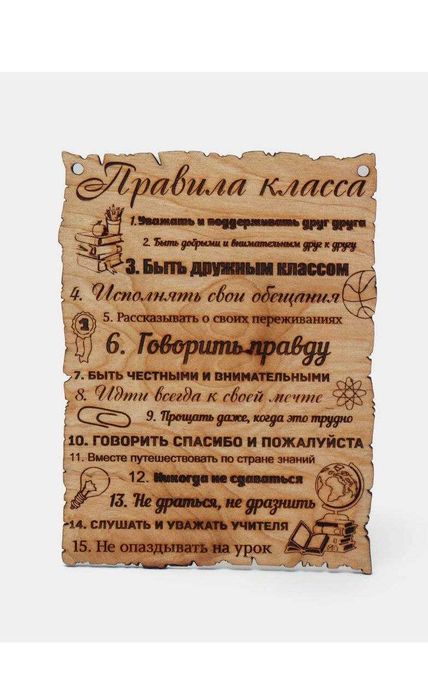 Правила класса
1. Уважать и поддерживать друг друга
2. Быть добрыми и внимательным друг к другу
3. Быть дружным классом
4. Исполнять свои обещания
5. Рассказывать о своих переживаниях
6. Говорить правду
7. БЫТЬ ЧЕСТНЫМИ И ВНИМАТЕЛЬНЫМИ
8. Идти всегда к своей мечте
9. Прощать даже, когда это трудно
10. ГОВОРИТЬ СПАСИБО И ПОЖАЛУЙСТА
11. Вместе путешествовать по стране знаний
12. Никогда не сдаваться
13. Не драться, не дразнить
14. СЛУШАТЬ И УВАЖАТЬ УЧИТЕЛЯ
15. Не опаздывать на урок
1